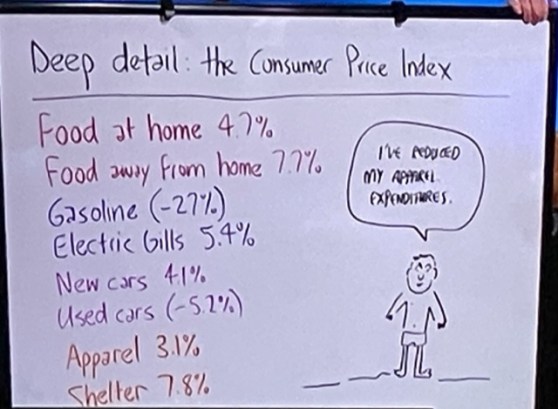 Deep detail: the Consumer Price Index
Food at home 4.7%
Food away from home 7.7%
Gasoline (-27%)
Electric bills 5.4%
New cars 4.1%
Used cars (-5.2%)
Apparel 3.1%
Shelter 7.8%
I'VE REDUCED
MY APPAREL
EXPENDITURES.